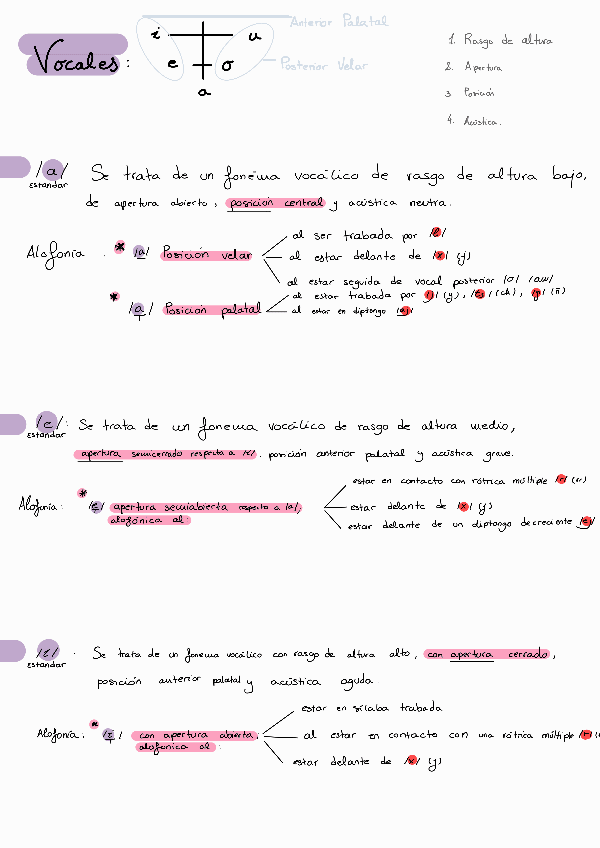 Vocales:
i u
e o
a
Anterior Palatal
Posterior Velar
1. Rasgo de altura
2. Apertura
3. Posición
4. Acústica.
/a/ Se trata de un fonema vocálico de rasgo de altura bajo,
estandar
de apertura abierto, posición central y acústica neutra.
Alofonía * /a/ Posición velar
al ser trabada por /l/
al estar delante de /x/ (j)
al estar seguida de vocal posterior /o/ /au/
* /a/ Posición palatal
al estar en diptongo
/e/: Se trata de un fonema vocálico de rasgo de altura medio,
estandar
apertura semicerrado respecto a /e/. posición anterior palatal y acústica grave.
Alofonía: * /e/ apertura semiabierta respecto a /a/,
alofónica al:
estar en contacto con rótica múltiple /r/ (rr)
estar delante de /x/ (j)
estar delante de un diptongo decreciente /ej/
/i/ . Se trata de un fonema vocálico con rasgo de altura alto, con apertura cerrado,
estandar
posición anterior palatal y acústica aguda.
Alofonía: * /i/ con apertura abierta,
alofónica al:
estar en sílaba trabada
al estar en contacto con una rótica múltiple /r/
estar delante de /x/ (j)